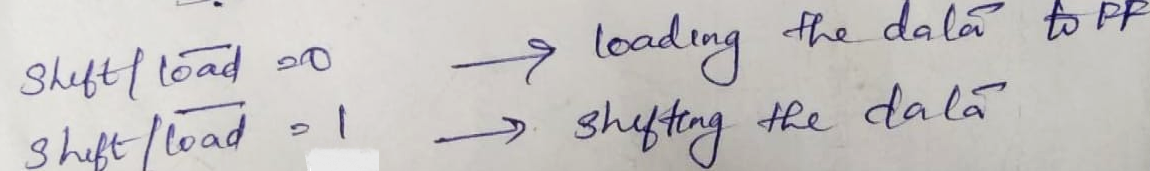 Shift/load = 0 → loading the data to FF
Shift/load = 1 → shifting the data